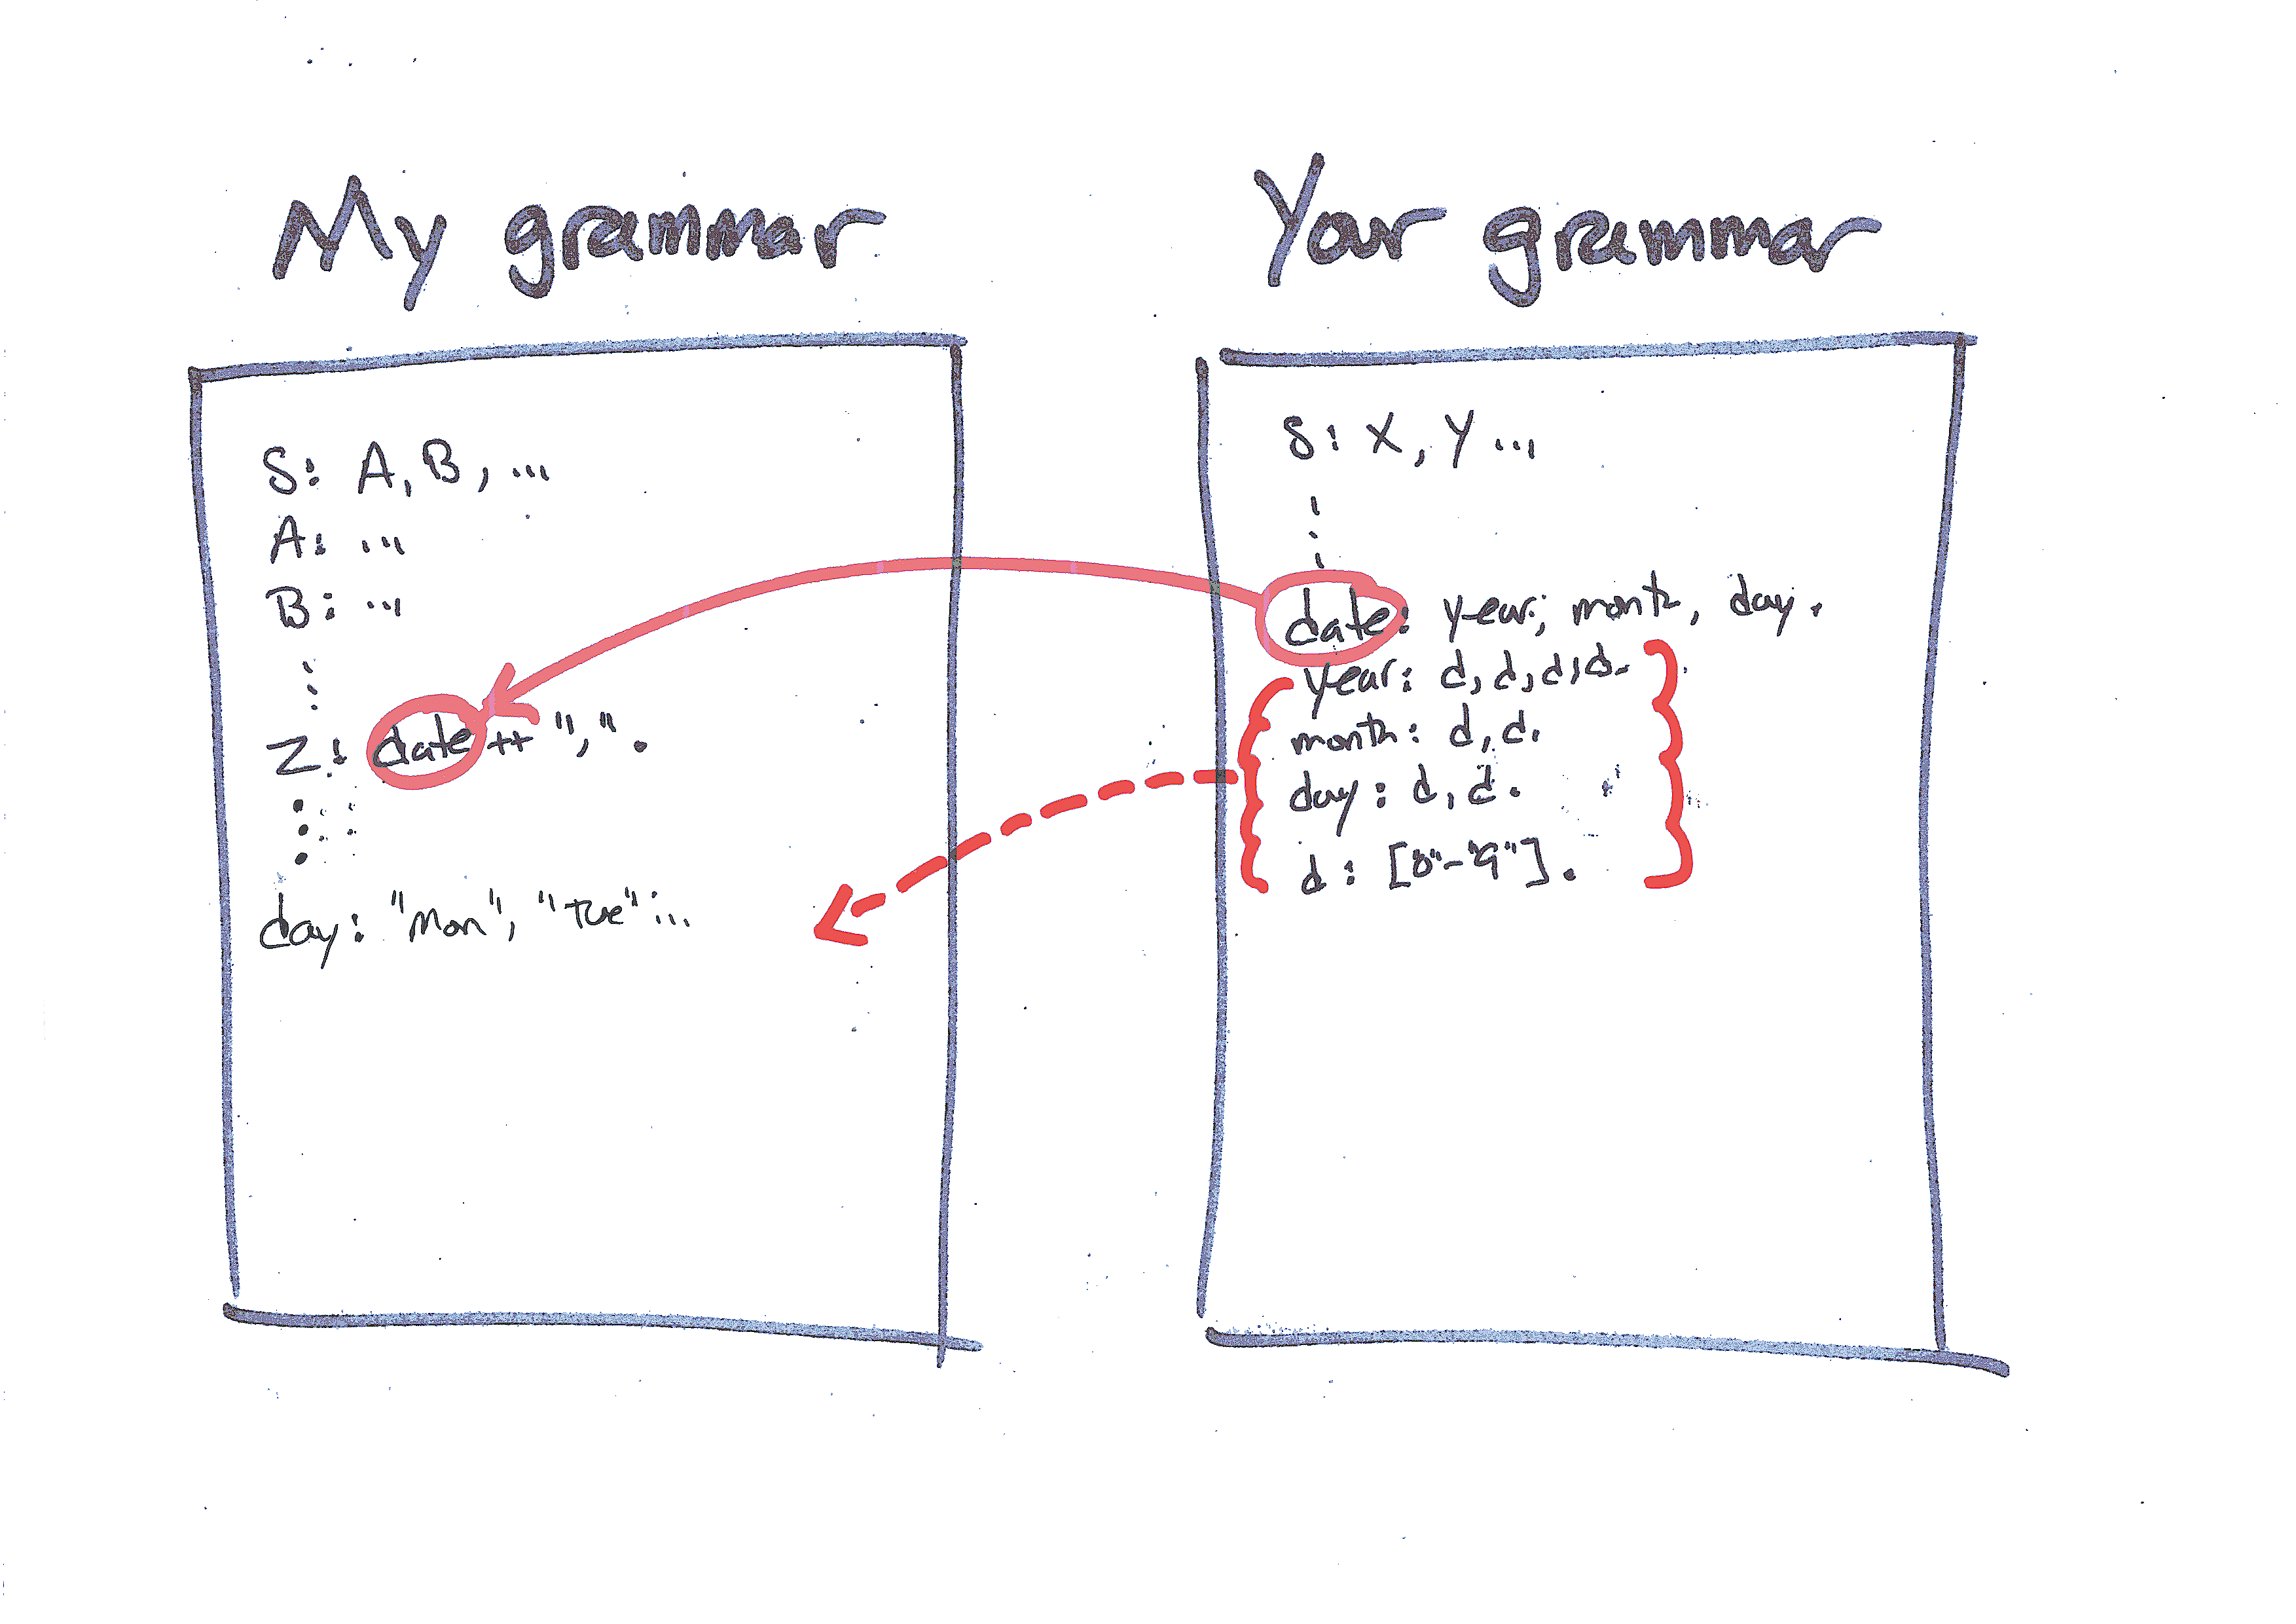 My grammar
S: A, B, ...
A: ...
B: ...
⋮
Z: date ++ ",".
⋮
day: "Mon", "Tue"...
Your grammar
S: X, Y ...
⋮
date: year, month, day.
year: d, d, d, d.
month: d, d.
day: d, d.
d: ["0"-"9"].